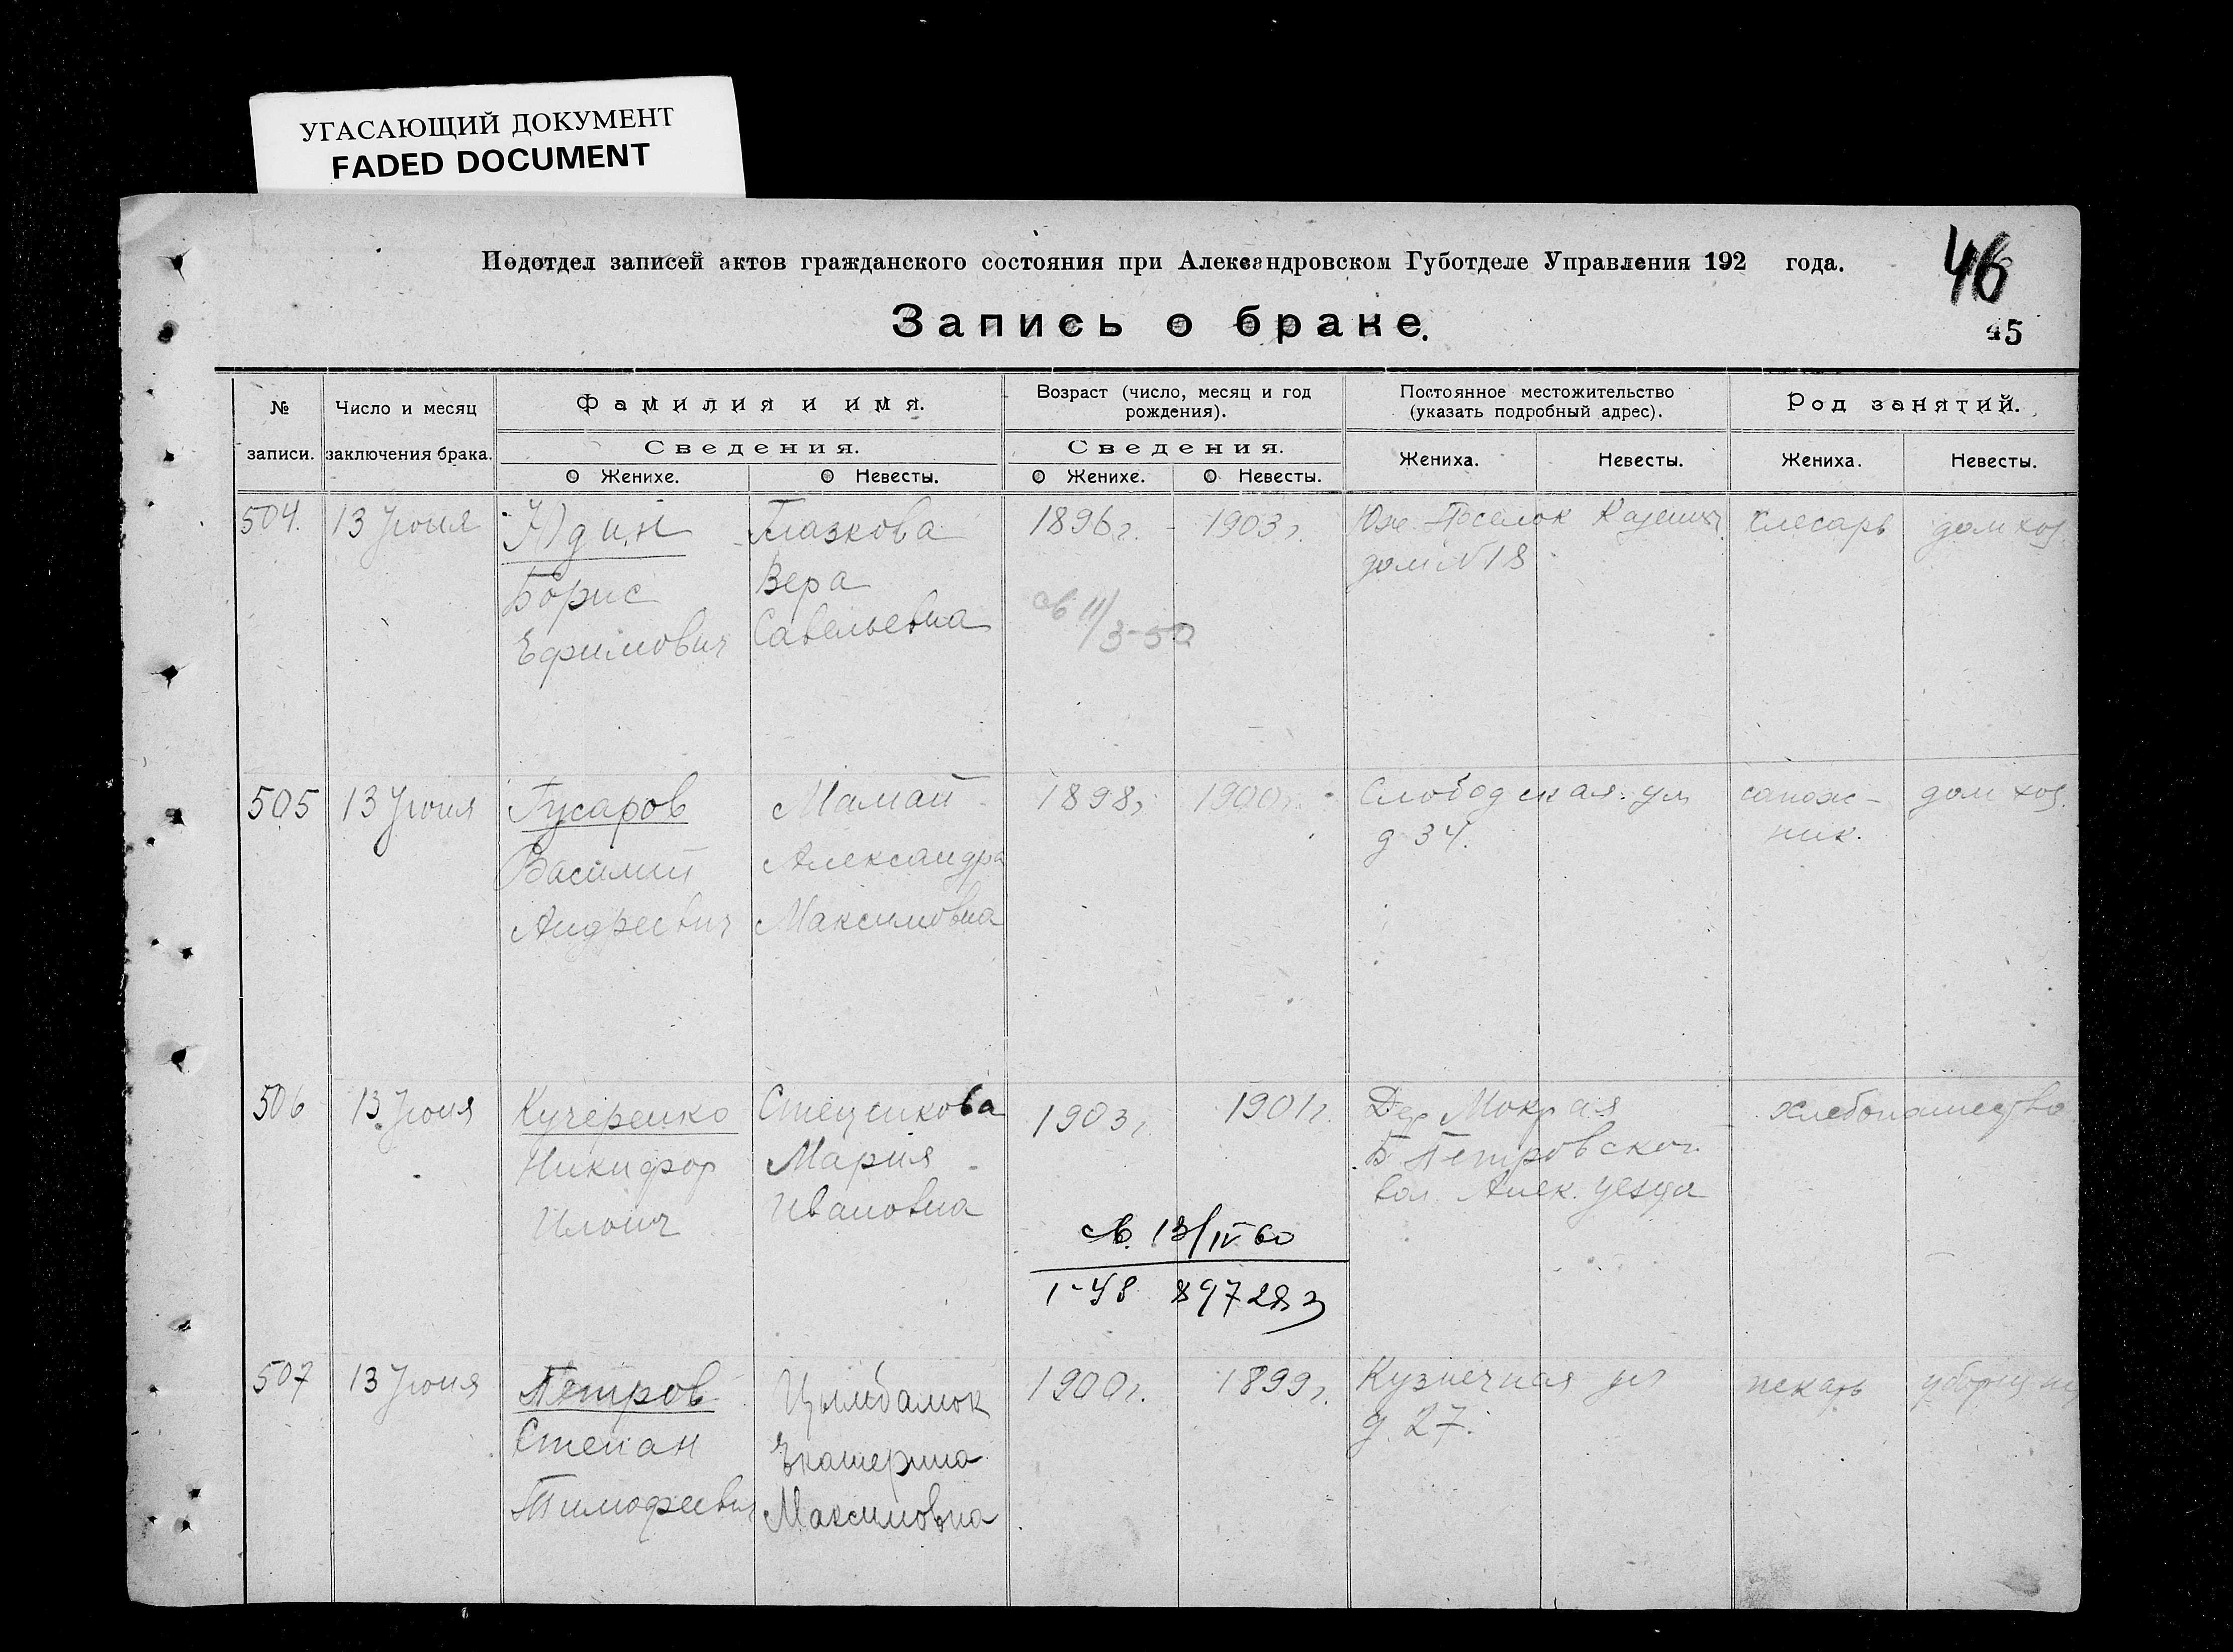 УГАСАЮЩИЙ ДОКУМЕНТ
FADED DOCUMENT
Подотдел записей актов гражданского состояния при Александровском Губотделе Управления 192 года.
46
Запись о браке.
45
№ записи.
Число и месяц заключения брака.
Фамилия и имя.
Сведения.
О Женихе.
О Невесты.
Возраст (число, месяц и год рождения).
Сведения.
О Женихе.
О Невесты.
Постоянное местожительство (указать подробный адрес).
Жениха.
Невесты.
Род занятий.
Жениха.
Невесты.
504. 13 Июня Юдин Глазкова 1896 г. 1903 г. Юж. Поселок слесарь дом хоз.
Борис Вера дом N 18
Ефимович Савельевна
11/3-50
505 13 Июня Гусаров Мамай 1898 г. 1900 г. Слободская ул сапож- дом хоз.
Василий Александра д 34. ник.
Андреевич Максимовна
506 13 Июня Кучеренко Стеценкова 1903 г. 1901 г. Дер Мокрая хлебопашество
Никифор Мария Б Петровской
Ильич Ивановна вол. Алек. уезда
13/IV 60
1-48 897283
507 13 Июня Петров Цымбалюк 1900 г. 1899 г. Кузнечная ул пекарь
Степан Екатерина д. 27.
Тимофеевич Максимовна